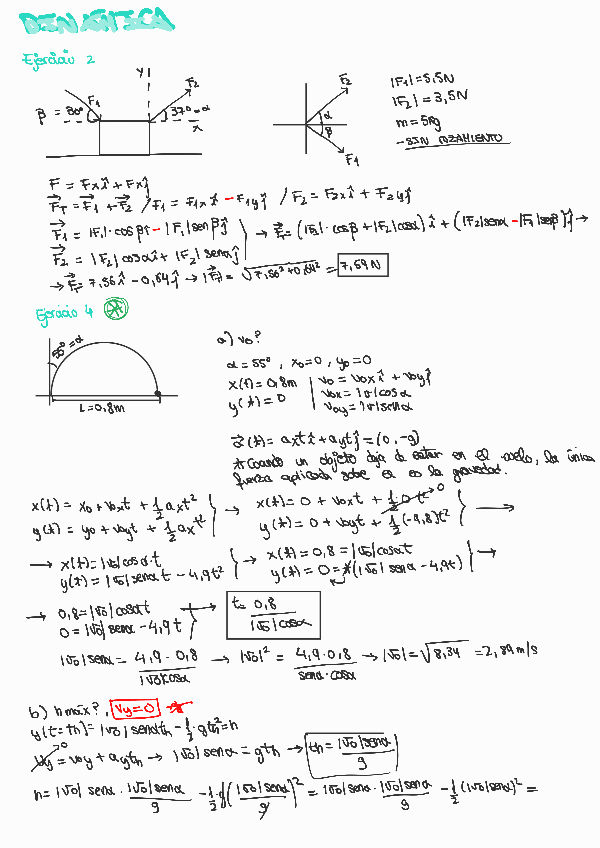 DINÁMICA
Ejercicio 2
y
F₁
F₂
β = 30°
37° = α
x
F₂
α
β
F₁
|F₁| = 5,5N
|F₂| = 3,5N
m = 5Kg
-SIN ROZAMIENTO
F = Fx î + Fx ĵ
F_T = F₁ + F₂ / F₁ = F₁x î - F₁y ĵ / F₂ = F₂x î + F₂y ĵ
F₁ = |F₁| · cos β î - |F₁| sen β ĵ
F₂ = |F₂| cos α î + |F₂| sen α ĵ
→ F_T = (|F₁| · cos β + |F₂| cos α) î + (|F₂| sen α - |F₁| sen β) ĵ →
→ F_T = 7,56 î - 0,64 ĵ → |F_T| = √7,56² + 0,64² = 7,59 N
Ejercicio 4
55° = α
L = 0,8m
a) v₀?
α = 55°, x₀ = 0, y₀ = 0
x(t) = 0,8m
y(t) = 0
v₀ = v₀x î + v₀y ĵ
v₀x = |v| cos α
v₀y = |v| sen α
a(t) = axt î + ayt ĵ = (0, -g)
* Cuando un objeto deja de estar en el suelo, la única
fuerza aplicada sobre él es la gravedad.
x(t) = x₀ + v₀xt + ½ axt²
y(t) = y₀ + v₀yt + ½ axt²
→ x(t) = 0 + v₀xt + ½ 0 t² → 0
y(t) = 0 + v₀yt + ½ (-9,8)t²
→ x(t) = |v₀| cos α · t
y(t) = |v₀| sen α t - 4,9t²
→ x(t) = 0,8 = |v₀| cos α t
y(t) = 0 = t(|v₀| sen α - 4,9t)
→ 0,8 = |v₀| cos α t
0 = |v₀| sen α - 4,9t
→ t = 0,8 / |v₀| cos α
|v₀| sen α = 4,9 · 0,8 / |v₀| cos α → |v₀|² = 4,9 · 0,8 / sen α · cos α → |v₀| = √8,34 = 2,89 m/s
b) h máx?, Vy = 0 *
y(t = th) = |v₀| sen α th - ½ · g th² = h
Vy → 0 = v₀y + ay th → |v₀| sen α = g th → th = |v₀| sen α / g
h = |v₀| sen α · |v₀| sen α / g - ½ · g (|v₀| sen α / g)² = |v₀| sen α · |v₀| sen α / g - ½ (|v₀| sen α)² =